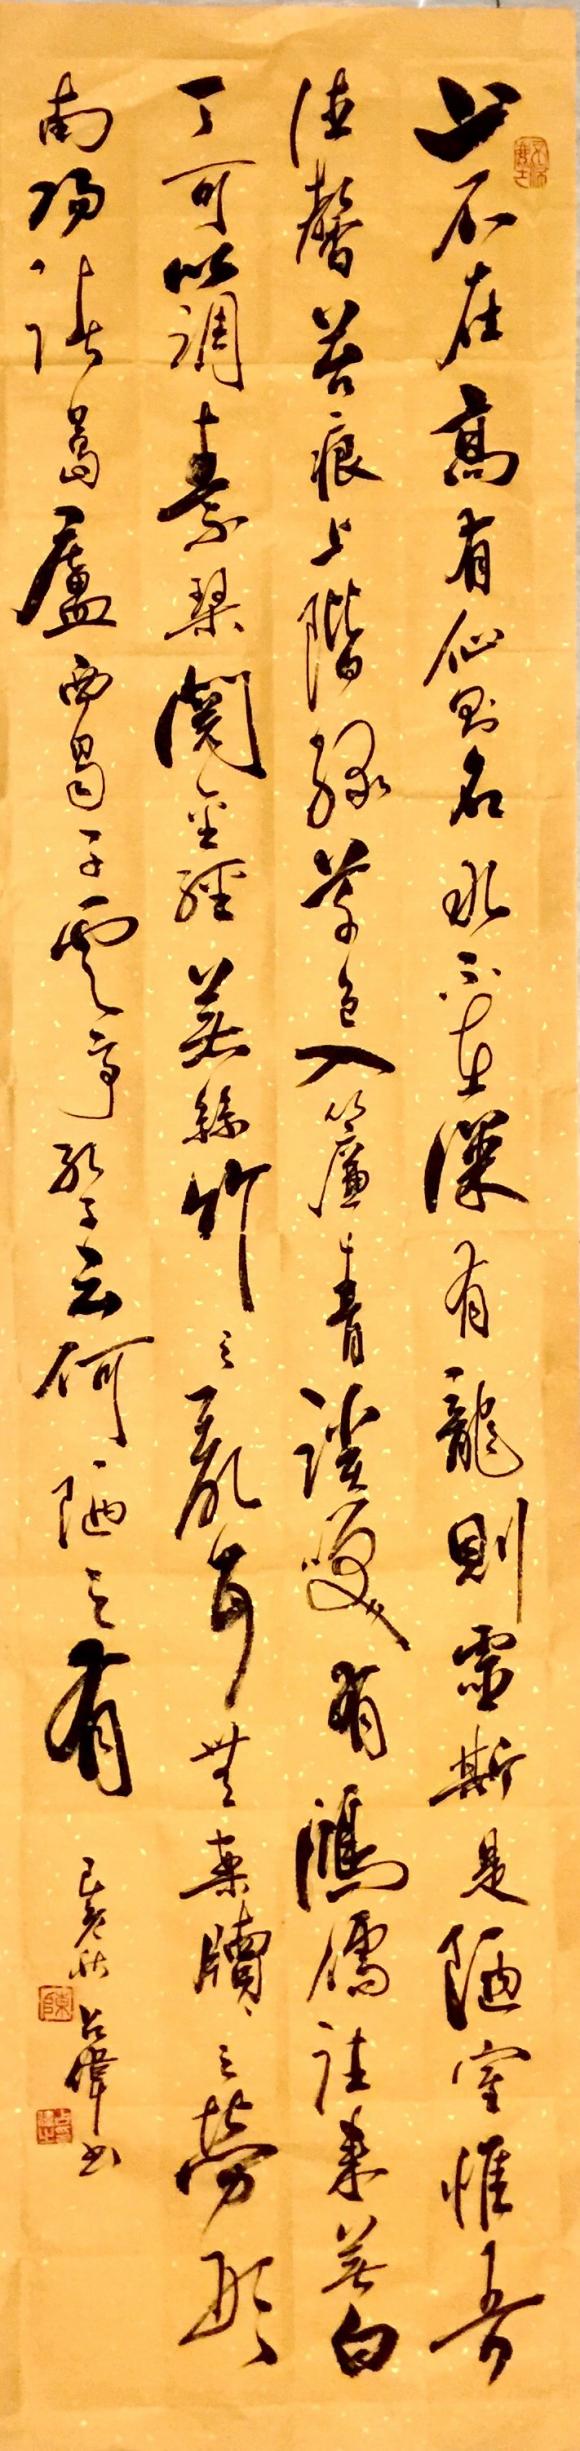 山不在高有仙則名水不在深有龍則靈斯是陋室惟吾
德馨苔痕上階緑草色入簾青談笑有鴻儒往來無白
丁可以調素琴閱金經無絲竹之亂耳無案牘之勞形
南陽諸葛廬西蜀子雲亭孔子云何陋之有
己亥秋占書
陳